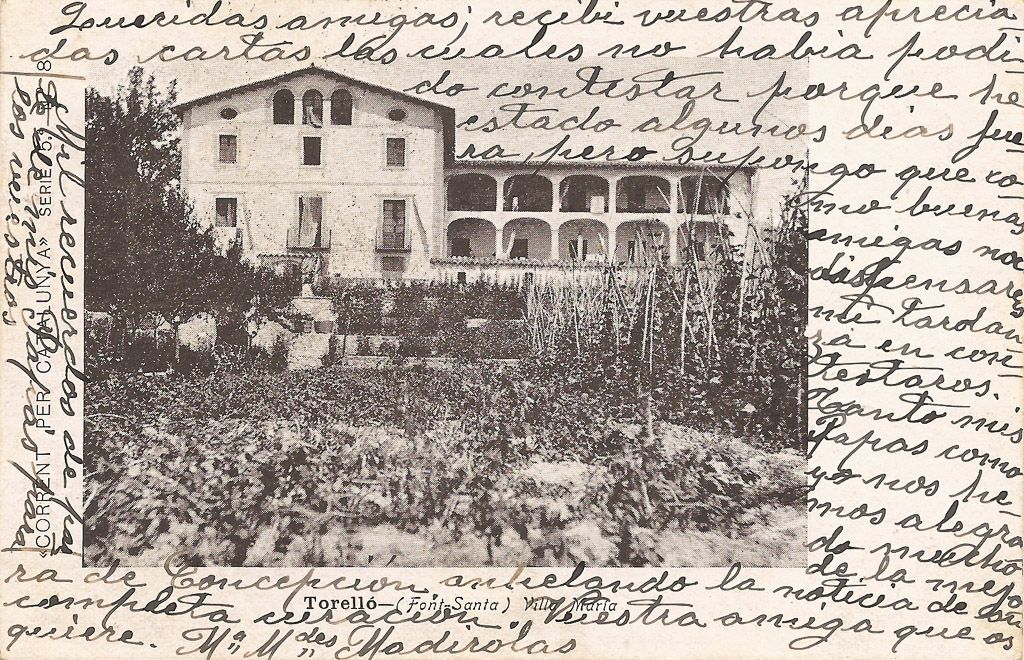 Queridas amigas; recibi vuestras aprecia
das cartas las cuales no habia podi
do contestar porque he
estado algunos dias fue
ra pero supongo que co
mo buenas
amigas no
dispensareis
mi tardan
za en con
testaros.
Tanto mis
Papas como
yo nos he
mos alegra
do mucho
de la mejo
ra de Concepcion anhelando la noticia de su
completa curacion. Vuestra amiga que os
quiere. Mª Mdes Madirolas
Mil recuerdos de
los nuestros
«CORRENT PER CATALUNYA» SERIE
Torelló—(Font-Santa) Villa María